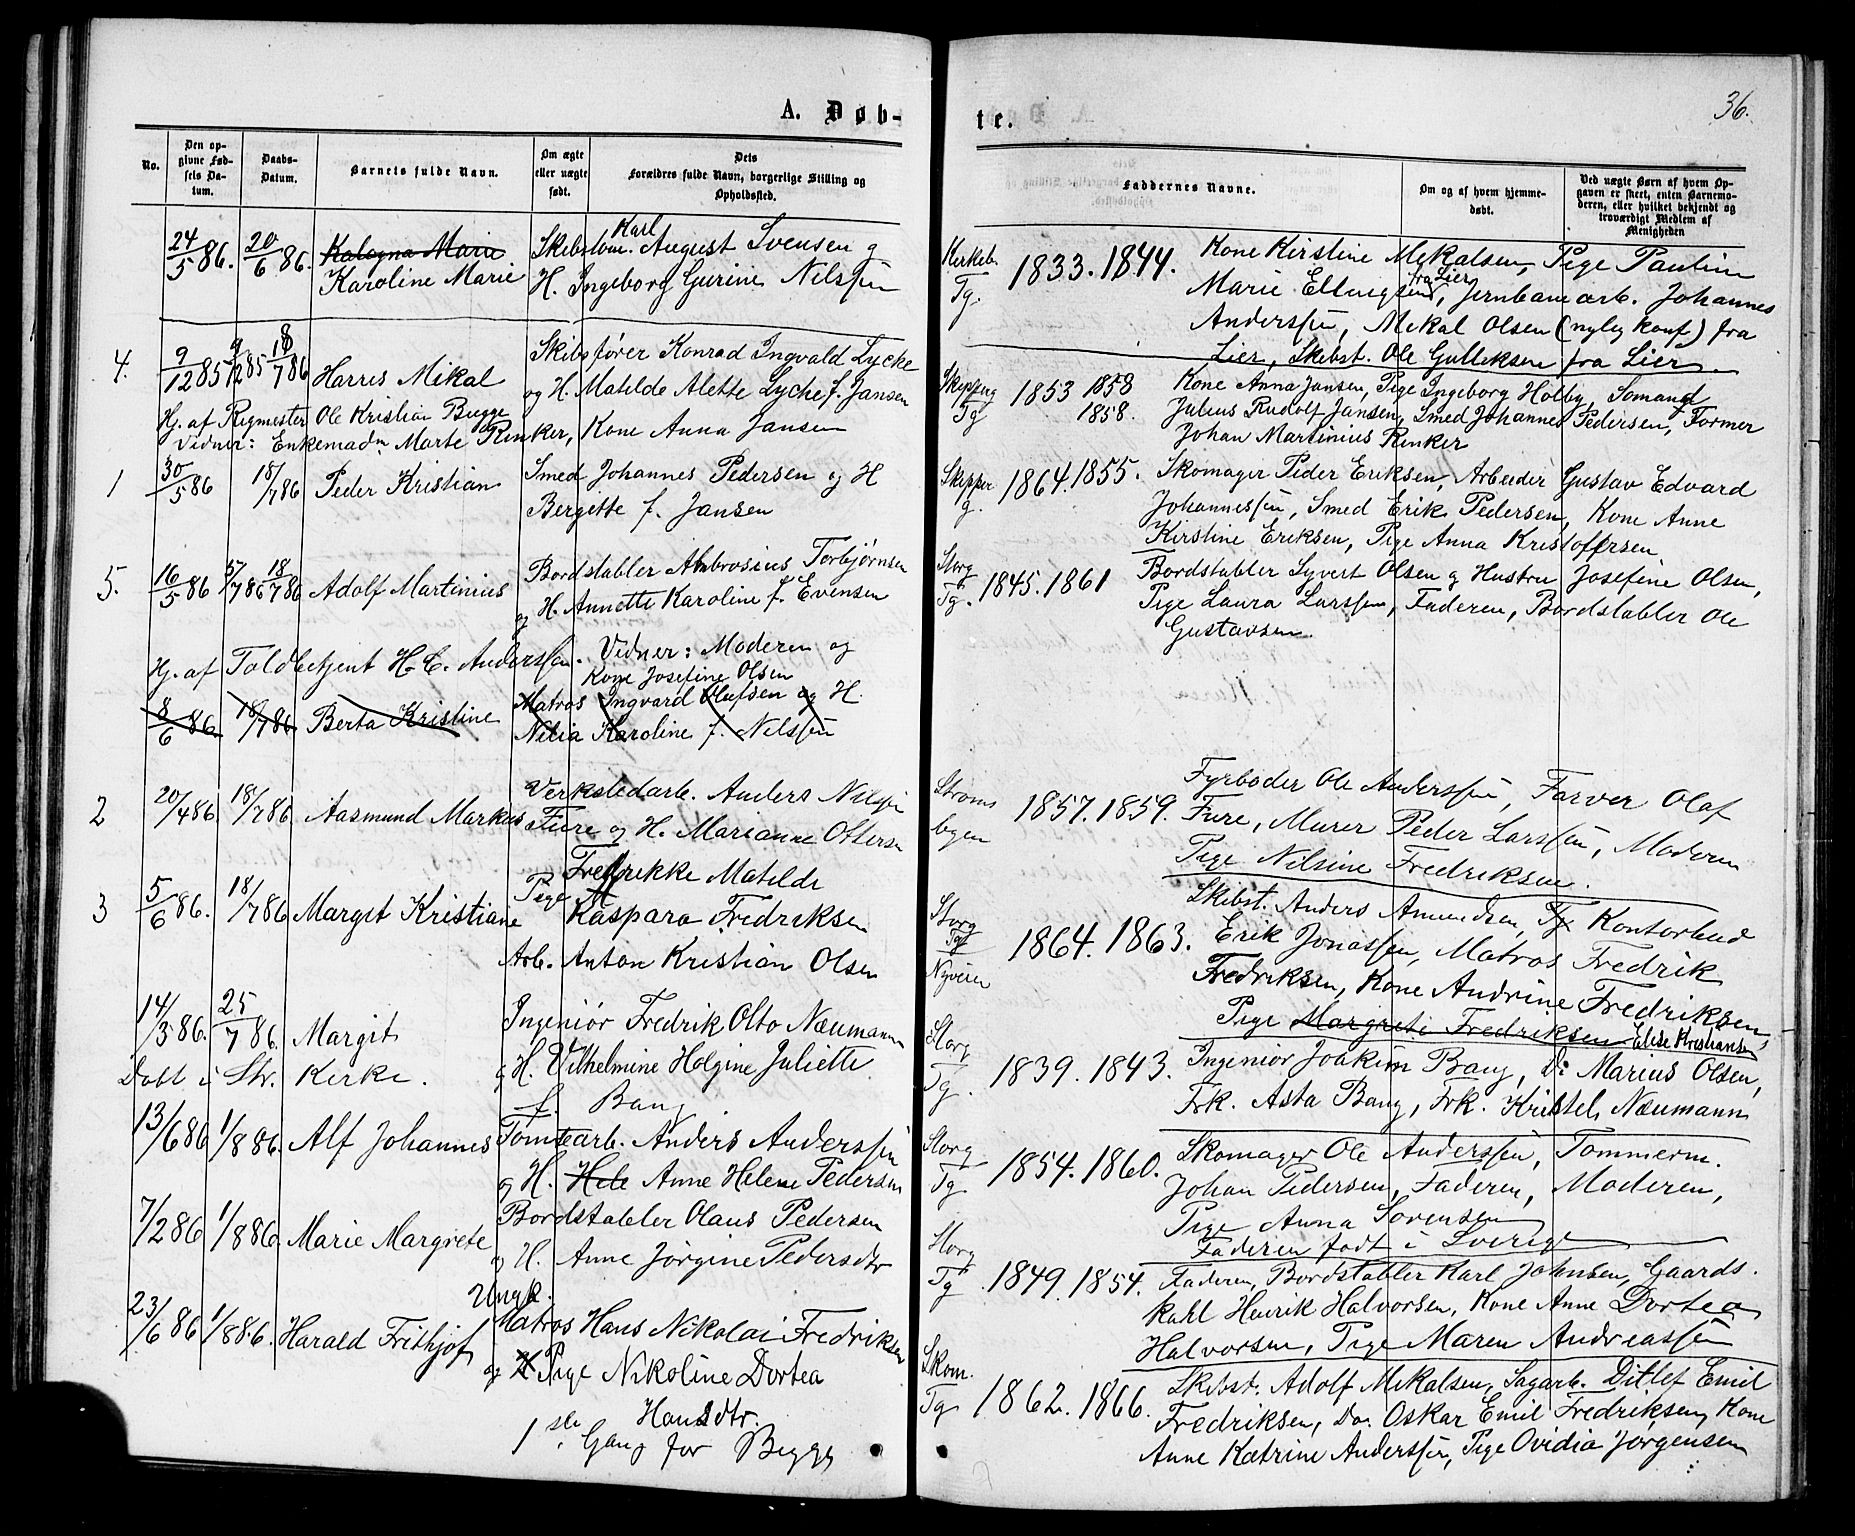 A. Døb-
No.
Den op-
givne Fød-
sels Da-
tum.
Daabs-
Datum.
Barnets fulde Navn.
Om ægte
eller uægte
født.
Dets
Forældres fulde Navn, borgerlige Stilling og
Opholdssted.
24/5 86. 20/6 86. Kalogna Marie
Karoline Marie
Karl
Skibstøm. August Svensen og
H. Ingeborg Gurine Nilssen
4. 9/12 85 9/12 85 18/7 86 Harres Mikal
Skibsfører Konrad Ingvald Lycke
og H. Matilde Alette Lycke f. Jansen
Hj. af Rigmester Ole Kristian Bugge
Vidner: Enkemadm Marte Rinker, Kone Anna Jansen
1 30/5 86 18/7 86 Peder Kristian
Smed Johannes Pedersen og H
Bergitte f. Jansen
5. 16/5 86 5/7 86 18/7 86 Adolf Martinius
Bordstabler Ambrosius Torbjørnsen
og H. Annette Karoline f. Evensen
Hj. af Toldbetjent H. C. Anderssen. Vidner: Moderen og
Kone Josefine Olsen
8/6 86. 18/7 86. Berta Kristine
Matros Ingvard Olafsen og H.
Nilia Karoline f. Nilssen
2 20/4 86. 18/7 86. Aasmund Markus
Verkstedarb. Anders Nilssen
Fure og H. Marianne Ottersen
3 5/6 86. 18/7 86 Margit Kristiane
Pige Fredrikke Matilde
Kaspara Fredriksen
Arb. Anton Kristian Olsen
14/3 86. 25/7 86. Margit
Ingeniør Fredrik Otto Næumann
Døbt i Str. Kirke.
og H. Vilhelmine Holgine Juliette
f. Bang
13/6 86 1/8 86. Alf Johannes
Tomtearb. Anders Anderssen
og H. Hele Anne Helene Pedersen
7/2 86 1/8 86. Marie Margrete
Bordstabler Olaus Pedersen
og H. Anne Jørgine Pedersdtr
Ungk.
23/6 86 1/8 86. Harald Frithjof
Matros Hans Nikolai Fredriksen
og H Pige Nikoline Dortea
Hansdtr.
1ste Gang for Begge
te.
36.
Faddernes Navne.
Om og af hvem hjemme-
døbt.
Ved uægte Børn af hvem Op-
gaven er skeet, enten Barnemo-
deren, eller hvilket bekjendt og
troværdigt Medlem af
Menigheden
Kirkeb.
Tg.
1833. 1844. Kone Kirstine Mekalsen, Pige Pauline
Marie Ellingsen fra Lier, Jernbanearb. Johannes
Anderssen, Mikal Olsen (nylig konf) fra
Lier, Skibst. Ole Gulliksen fra Lier.
Skipperg
Tg
1853 1858
1858.
Kone Anna Jansen, Pige Ingeborg Holby, Sømand
Julius Rudolf Jansen, Smed Johannes Pedersen, Former
Johan Martinius Rinker
Skipper
g.
1864. 1855. Skomager Peder Eriksen, Arbeider Gustav Edvard
Johannessen, Smed Erik Pedersen, Kone Anne
Kirstine Eriksen, Pige Anna Kristoffersen
Storg
Tg.
1845. 1861 Bordstabler Syvert Olsen og Hustru Josefine Olsen,
Pige Laura Larssen, Faderen, Bordstabler Ole
Gustavsen.
Strøms
byen
1857. 1859. Fyrbøder Ole Anderssen, Farver Olaf
Fure, Murer Peder Larssen, Moderen
Pige Nilsine Fredriksen.
Storg
Tg
Nyveien
1864. 1863. Skibst. Anders Amundsen, Kontorbud
Erik Jonassen, Matros Fredrik
Fredriksen, Kone Andrine Fredriksen,
Pige Margrete Fredriksen Elise Kristiansen
Storg
Tg.
1839. 1843. Ingeniør Joakim Bang, Do Marius Olsen,
Frk. Asta Bang, Frk. Kristel Næumann
Storg
Tg
1854. 1860. Skomager Ole Anderssen, Tømmerm.
Johan Pedersen, Faderen, Moderen,
Pige Anna Sørensen
Faderen født i Sverige
Storg
Tg
1849. 1854. Faderen, Bordstabler Karl Johnsen, Gaards.
Karl Henrik Halvorsen, Kone Anne Dortea
Halvorsen, Pige Maren Andreassen
Skom.
Tg
1862. 1866. Skibst. Adolf Mekalsen, Sagarb. Ditlef Emil
Fredriksen, Do. Oskar Emil Fredriksen, Kone
Anne Katrine Anderssen, Pige Ovidia Jørgensen